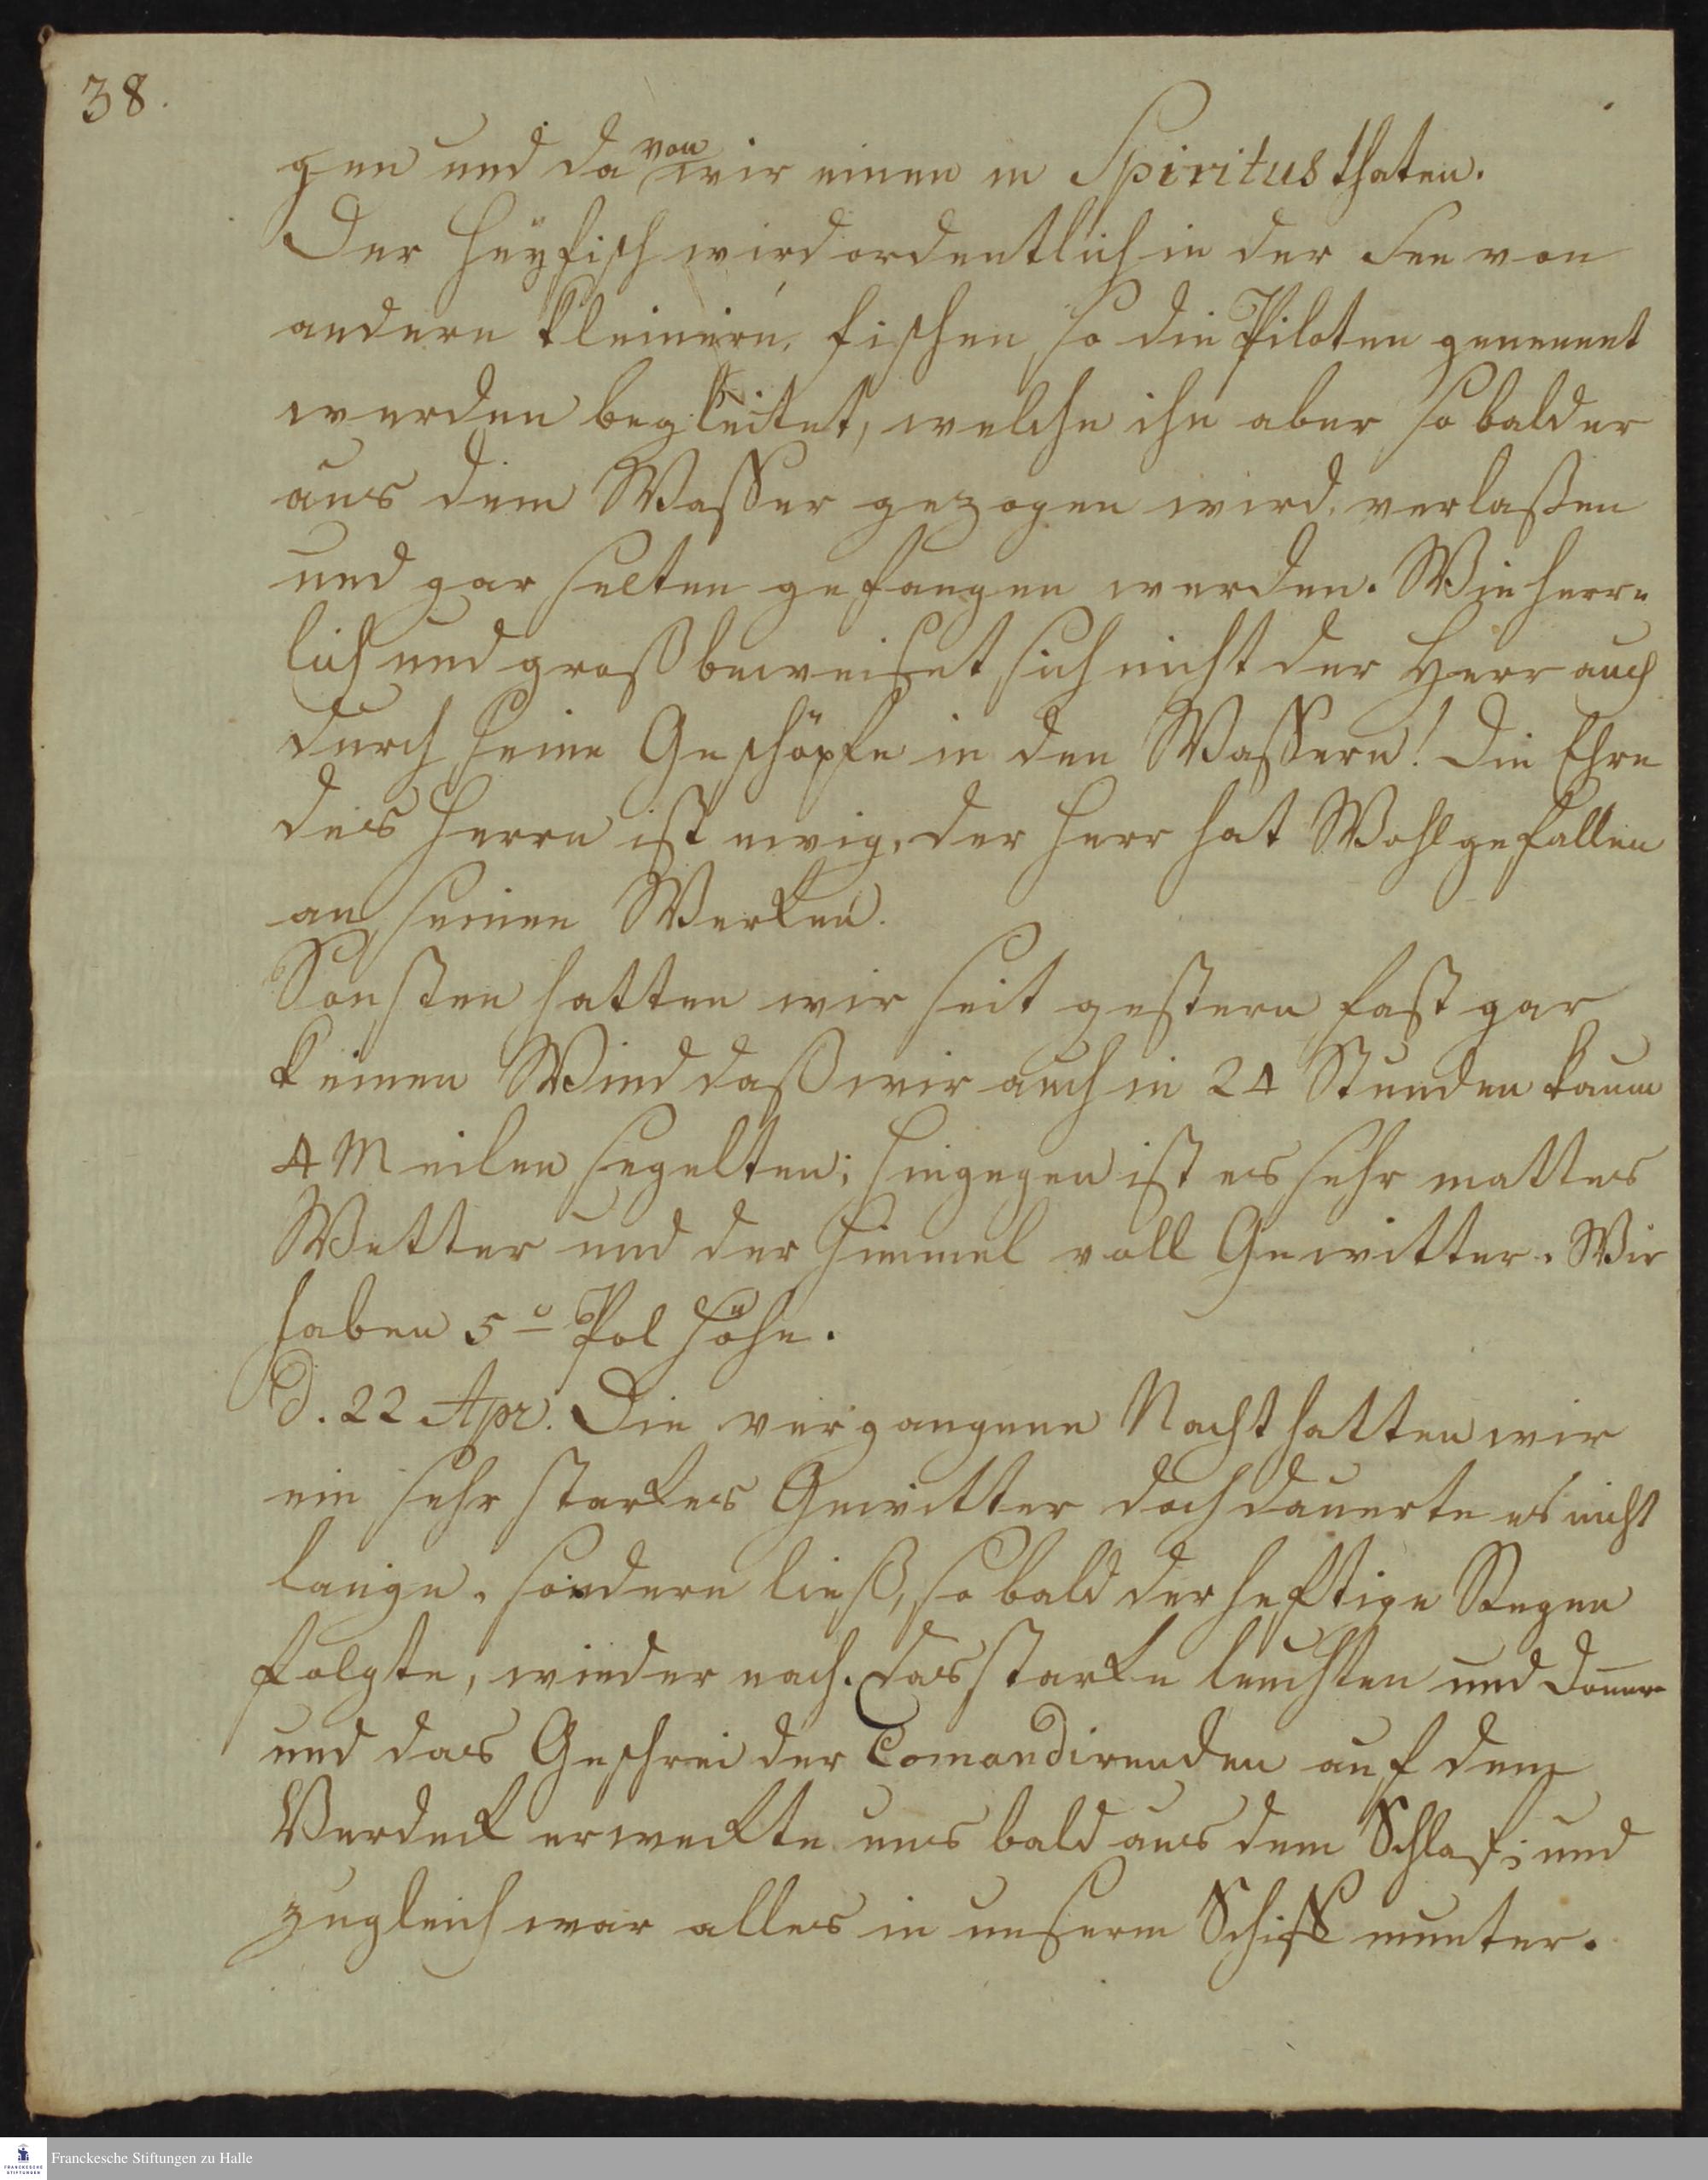 38.
gen und da von wir einen in Spiritus thaten.
Der Heyfisch wird ordentlich in der See von
andern kleinern, fischen, so die Piloten genennt
werden begleitet, welche ihn aber so bald er
aus dem Waßer gezogen wird, verlaßen
und gar selten gefangen werden. Wie herr-
lich und groß beweiset sich nicht der Herr auch
durch seine Geschöpfe in den Waßern! Die Ehre
des Herrn ist ewig, der Herr hat Wohlgefallen
an seinen Werken.
Sonsten hatten wir seit gestern fast gar
keinen Wind daß wir auch in 24 Stunden kaum
4 Meilen segelten; hingegen ist es sehr mattes
Wetter und der Himmel voll Gewitter. Wir
haben 5° Pol Höhe.
d. 22 Apr. Die vergangene Nacht hatten wir
ein sehr starkes Gewitter doch dauerte es nicht
lange, sondern ließ, so bald der heftige Regen
folgte, wieder nach. das starke leuchten und Doner
und das Geschrei der Comandirenden auf dem
Verdeck erweckte uns bald aus dem Schlaf; und
zugleich war alles in unserm Schiff munter.
FRANCKESCHE STIFTUNGEN
Franckesche Stiftungen zu Halle